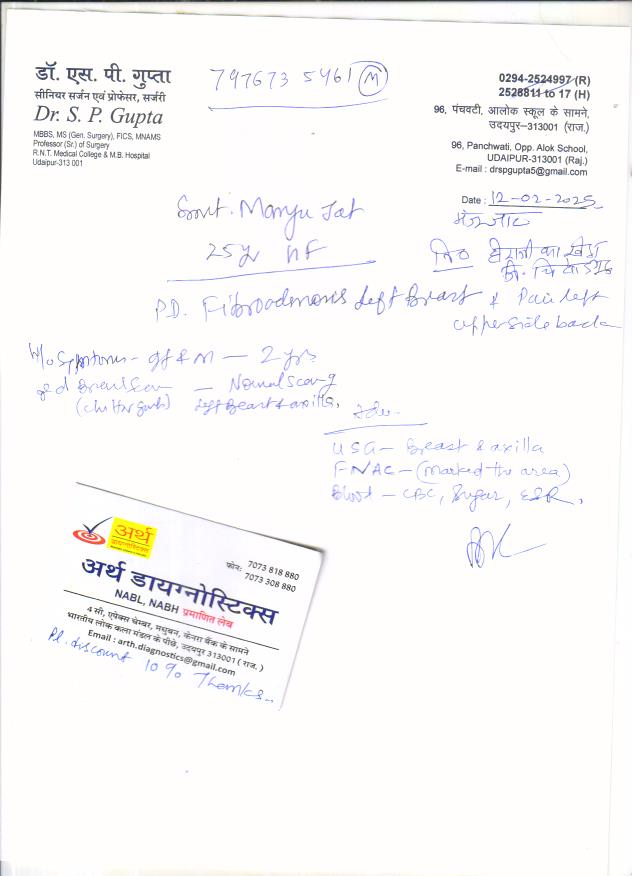 डॉ. एस. पी. गुप्ता
सीनियर सर्जन एवं प्रोफेसर, सर्जरी
Dr. S. P. Gupta
MBBS, MS (Gen. Surgery), FICS, MNAMS
Professor (Sr.) of Surgery
R.N.T. Medical College & M.B. Hospital
Udaipur-313 001
797673 5461 (M)
0294-2524997 (R)
2528811 to 17 (H)
96, पंचवटी, आलोक स्कूल के सामने,
उदयपुर–313001 (राज.)
96, Panchwati, Opp. Alok School,
UDAIPUR-313001 (Raj.)
E-mail : drspgupta5@gmail.com
Date : 12-02-2025
Smt. Manju Jat
25 yr
P.D. Fibroadenosis Left Breast & Pain left
upperside back
2 yrs
Breast Scan — Normal Scan of
Left Breast & axilla,
Adv.
USG — Breast & axilla
FNAC — (Marked the area)
Blood — CBC, Sugar, ESR,
अर्थ
डायग्नोस्टिक्स
अर्थ डायग्नोस्टिक्स
फोन: 7073 818 880
7073 308 880
NABL, NABH प्रमाणित लेब
4 सी, एपेक्स चेम्बर, मधुबन, केनरा बैंक के सामने
भारतीय लोक कला मंडल के पीछे, उदयपुर 313001 ( राज. )
Email : arth.diagnostics@gmail.com
Pl. discount 10% Thanks..